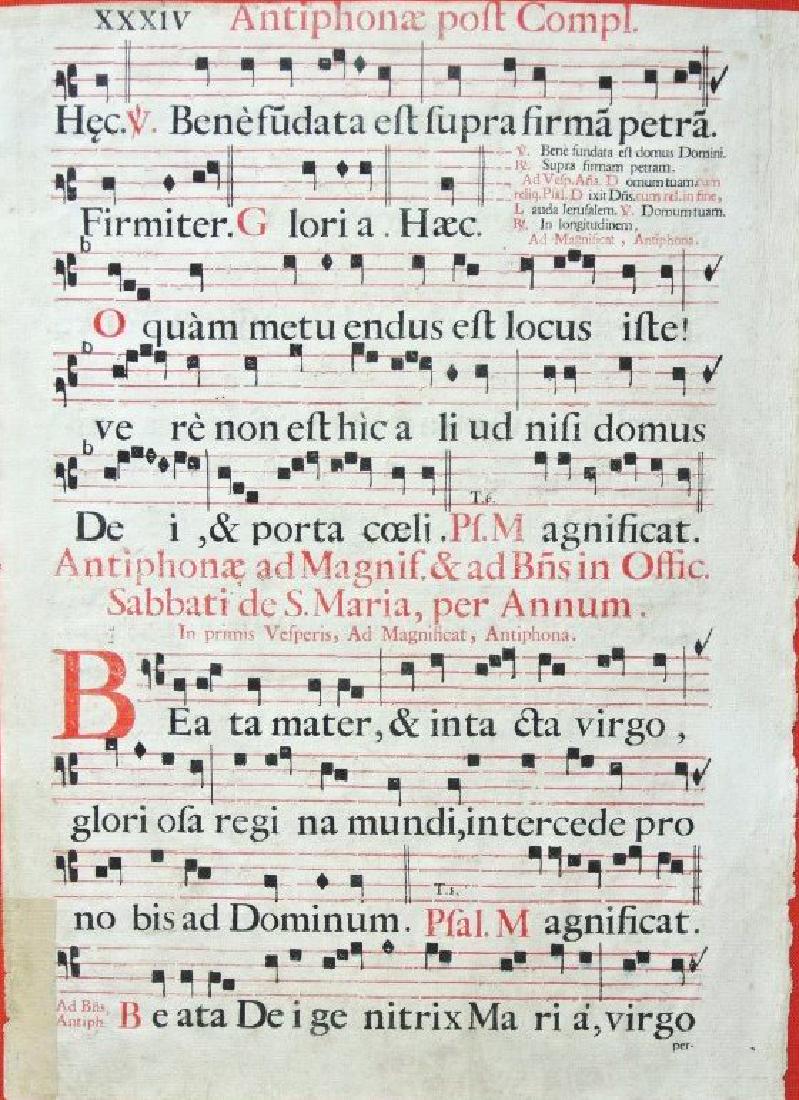 XXXIV Antiphonæ poſt Compl.
Hęc. ℣. Benè fũdata eſt ſupra firmã petrã.
℣. Bene fundata eſt domus Domini.
℟. Supra firmam petram.
Ad Veſp. Añs. D omum tuam. cum
reliq. Pſal. D ixit Dñs. cum rel. in fine,
L auda Jeruſalem. ℣. Domum tuam.
℟. In longitudinem.
Ad Magnificat, Antiphona.
Firmiter. G lori a. Hæc.
b
O quàm metu endus eſt locus iſte!
b
ve rè non eſt hìc a li ud niſi domus
b
De i, & porta cœli. Pſ. M agnificat.
Antiphonæ ad Magnif. & ad Bñs in Offic.
Sabbati de S. Maria, per Annum.
In primis Veſperis, Ad Magnificat, Antiphona.
BEa ta mater, & inta cta virgo,
glori oſa regi na mundi, intercede pro
T.s.
no bis ad Dominum. Pſal. M agnificat.
Ad Bñs,
Antiph.
B e ata De i ge nitrix Ma ri a, virgo
per-